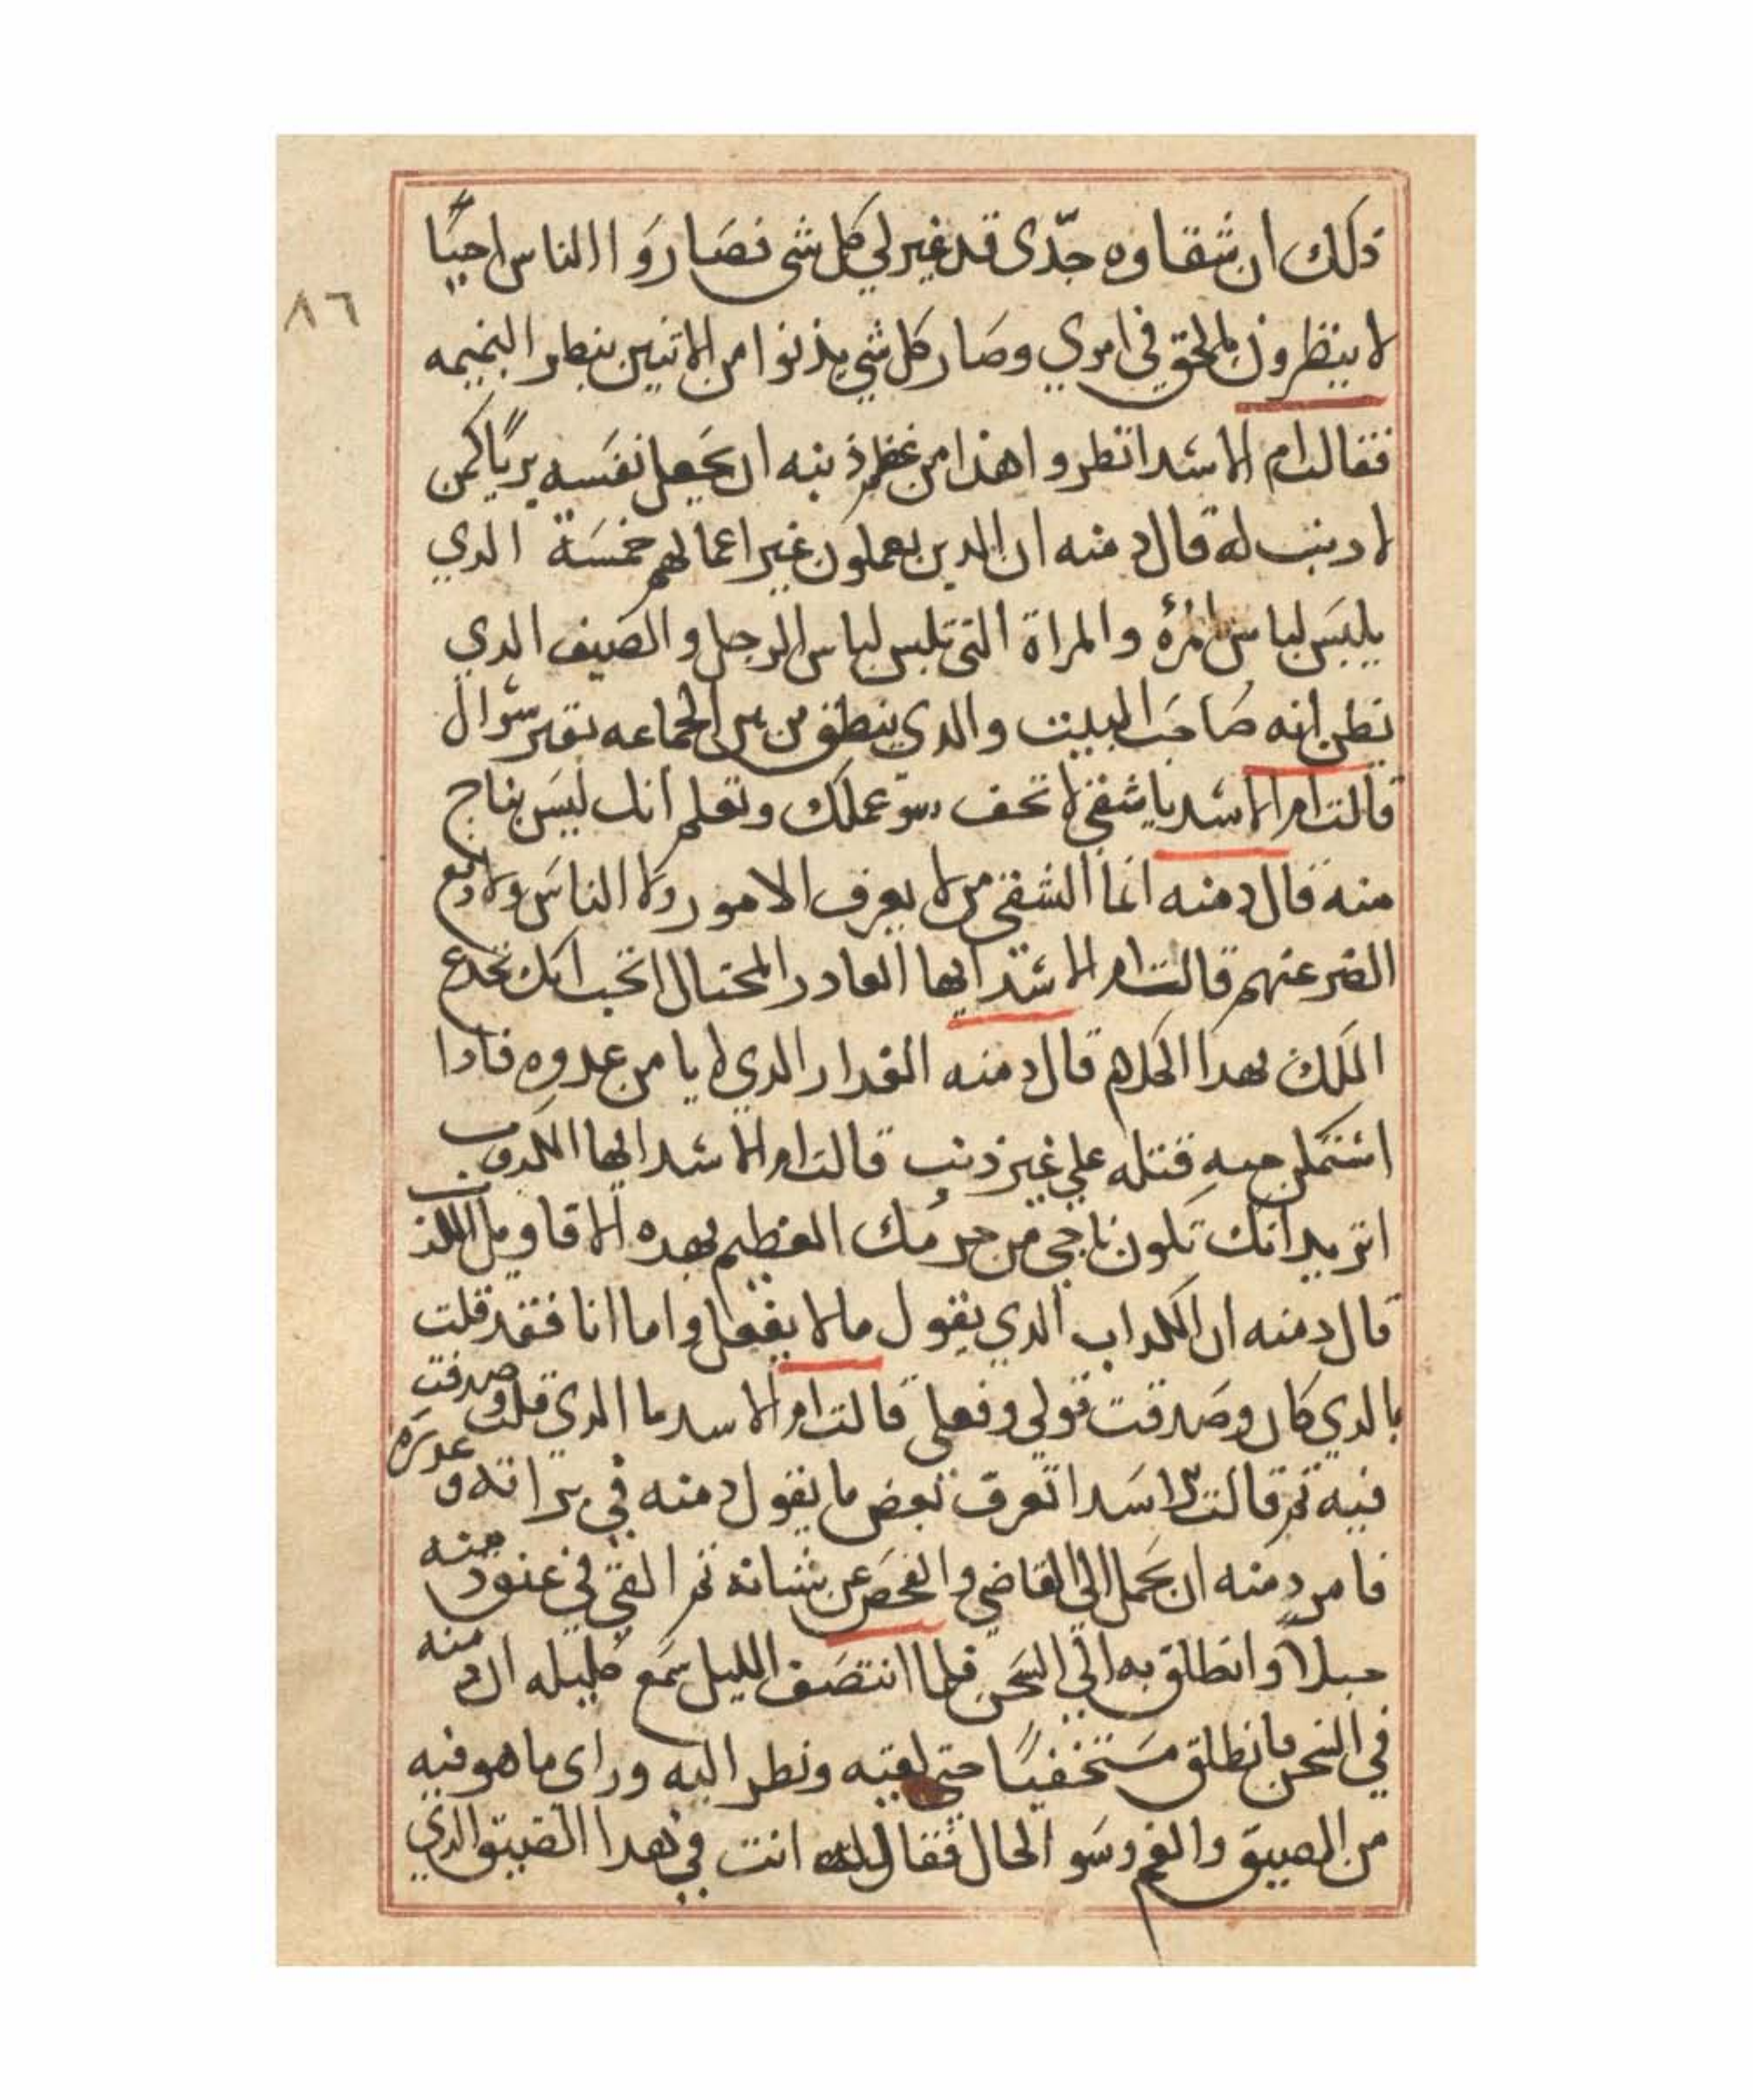 ذلك ان شقاوه جدّى قد غير لي كل شى فصاروا الناس احيًا
٨٦
لا ينظرون بالحق في امري وصار كل شي يذنوا من الاثنين بنطر النميمه
فقالت ام الاسد انظروا هذا من عظم ذنبه ان يجعل نفسه بريًا كمن
لا دنب له قال دمنه ان الدين يعملون غير اعمالهم خمسة الدي
يلبس لباس امرٔه والمراة التي تلبس لباس الرجل والصيف الدي
يطن انه صاحب البيت والدي ينطق من بين الجماعه بغير سوال
قالت ام الاسد يا شقي لا تخف سو عملك وتعلم انك ليس بناج
منه قال دمنه انما الشقي من لا يعرف الامور ولا الناس ولا دفع
الضر عنهم قالت ام الاسد ايها الغادر المحتال اتحب انك تخدع
الملك بهدا الكلام قال دمنه الغدار الدي لا يامن عدوه فادا
استمكن منه قتله علي غير ذنب قالت ام الاسد ايها الكدوب
اتريد انك تكون ناجي من جرمك العظيم بهده الاقاويل الكذ
قال دمنه ان الكداب الدي يقول ما لا يفعل واما انا فقد قلت
بالدي كان وصدقت قولي وفعلي قالت ام الاسد ما الدي قلت وصدقت
فيه ثم قالت لاسدا تعرف بعض ما يقول دمنه في براته و عدره
فامر دمنه ان يحمل الي القاضي والفحص عن شانه ثم القي في عنق دمنه
حبلاً وانطلق به الي السجن فلما انتصف الليل سمع كليله ان دمنه
في السجن فانطلق مستخفيًا حتي لقيه ونطر اليه وراى ما هو فيه
من الصيق والغم وسو الحال فقال له انت في هدا الضيق الدي